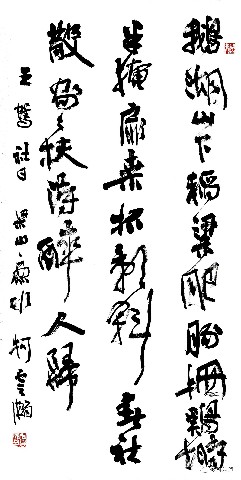 鵝湖山下稻粱肥豚柵鷄棲
半掩扉桑柘影斜春社
散家々扶得醉人歸
王駕社日 柯雲瀚